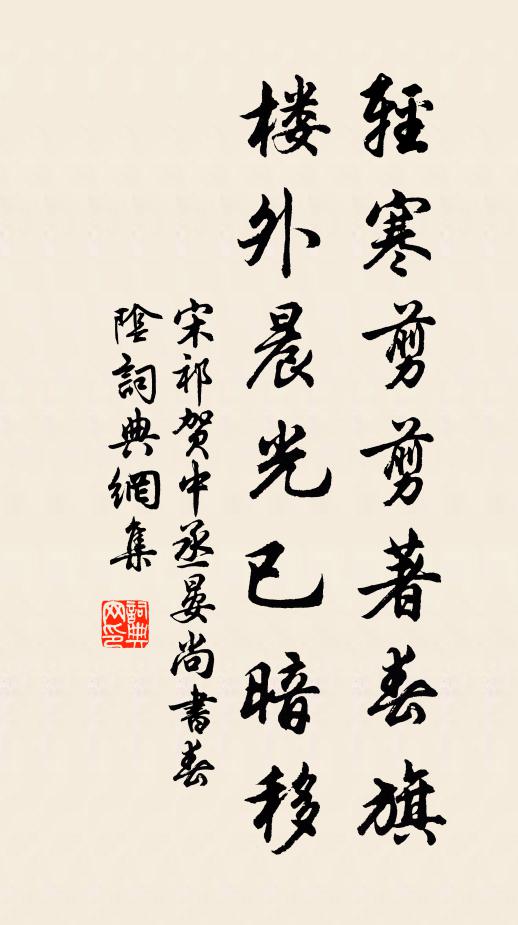 輕寒剪剪著春旗
楼外晨光已暗移
宋祁贺中丞晏尚書春
陰詞典網集
詞典
网印